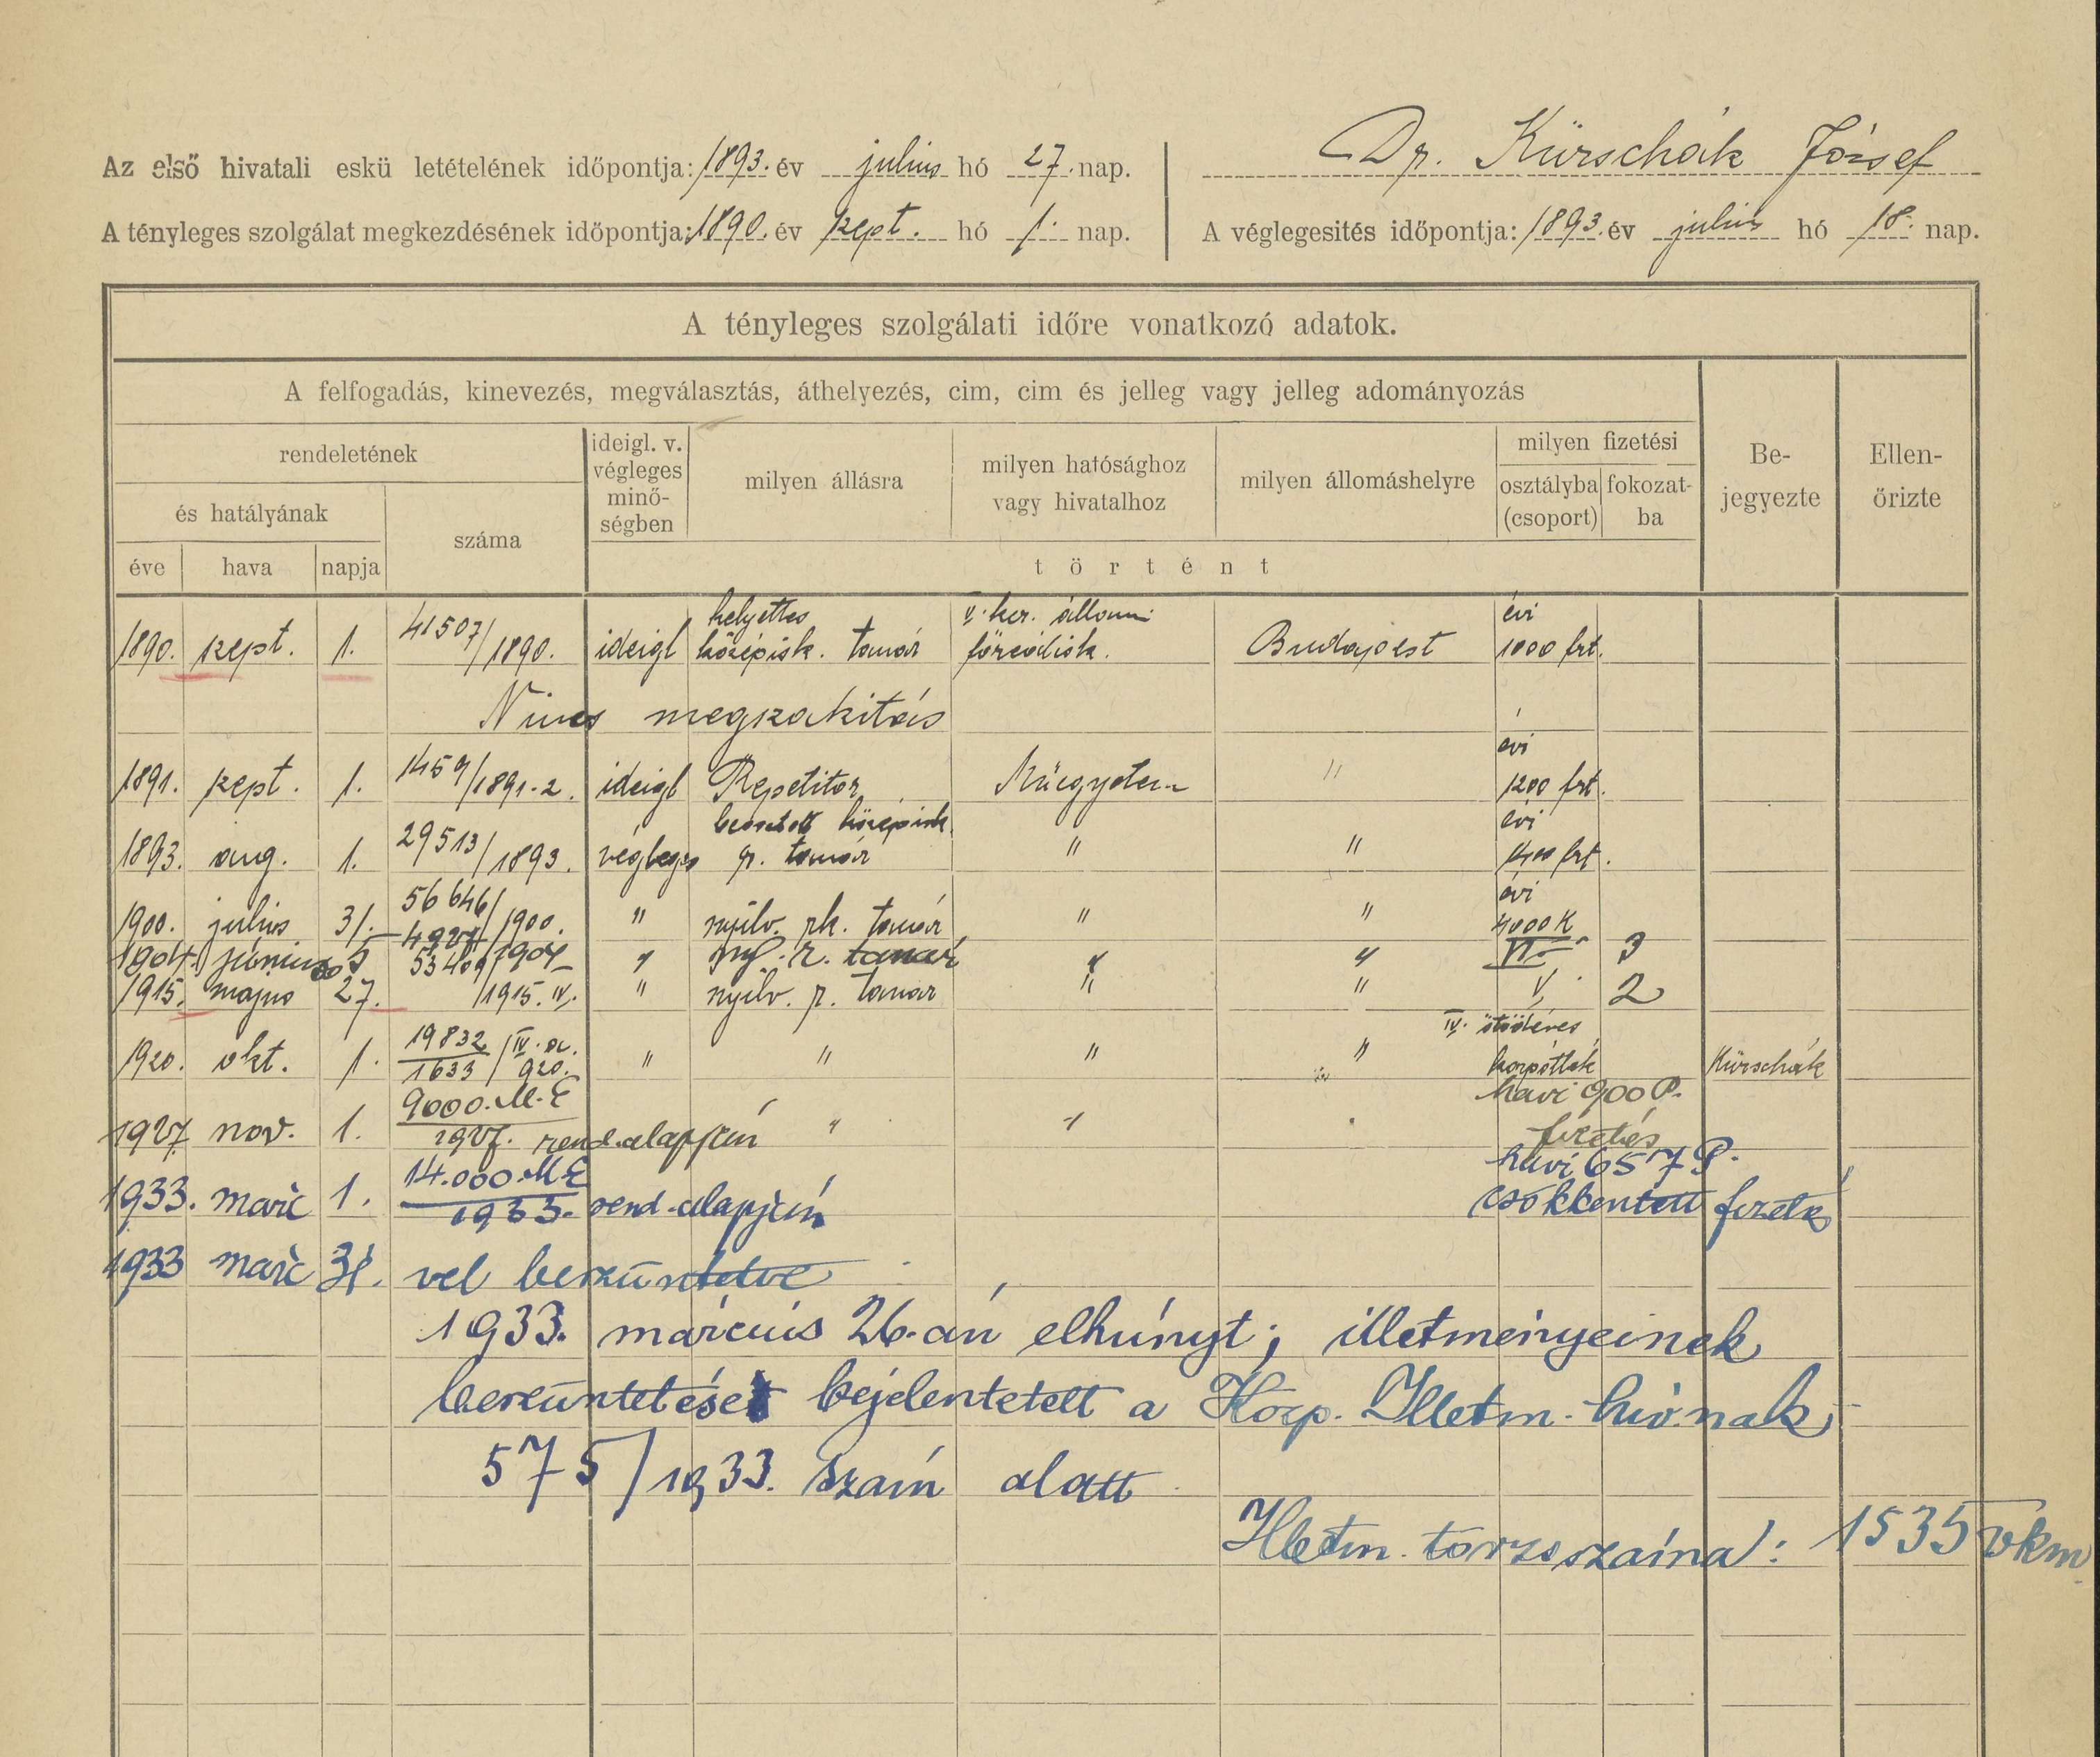 Az első hivatali eskü letételének időpontja: 1893. év julius hó 27. nap.
Dr. Kürschák József
A tényleges szolgálat megkezdésének időpontja: 1890. év szept. hó 1. nap.
A véglegesités időpontja: 1893. év julius hó 18. nap.
A tényleges szolgálati időre vonatkozó adatok.
A felfogadás, kinevezés, megválasztás, áthelyezés, cim, cim és jelleg vagy jelleg adományozás
rendeletének
és hatályának
éve hava napja
száma
ideigl. v.
végleges
minő-
ségben
milyen állásra
milyen hatósághoz
vagy hivatalhoz
milyen állomáshelyre
milyen fizetési
osztályba
(csoport)
fokozat-
ba
történt
Be-
jegyezte
Ellen-
őrizte
helyettes V. ker. állami évi
1890. szept. 1. 41507/1890. ideigl középisk. tanár főreálisk. Budapest 1000 frt.
Nincs megszakitás
évi
1891. szept. 1. 1459/1891-2. ideigl Repetitor Műegyetem " 1200 frt.
beosztott középisk. évi
1893. aug. 1. 29513/1893. végleges r. tanár " " 1400 frt.
évi
1900. julius 31. 56646/1900. " nyilv. rk. tanár " " 4000 K
1904. junius 5 1904 " ny. r. tanár " " VI. 3
1915. majus 27. /1915. IV. " nyilv. r. tanár " " V. 2
IV. ötödéves
1920. okt. 1. 19832/1633 / IV. a. 920. " " " " korpótlék Kürschák
havi 900 P.
1927 nov. 1. 9000. M.E 1927. rend. alapján " " fizetés
havi 657 P.
1933. márc 1. 14.000. M.E 1933. rend. alapján csökkentett fizetés
1933 márc 31. vel beszüntetve
1933. március 26-án elhúnyt; illetményeinek
beszüntetése bejelentetett a Közp. Illetm. hiv.nak
575/1933. szám alatt
Illetm. törzsszáma: 1535 vkm